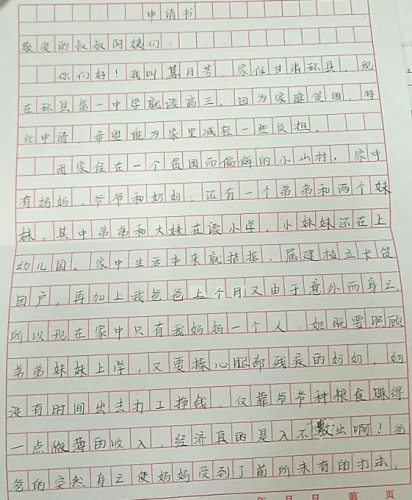 申请书
敬爱的叔叔阿姨们:
你们好!我叫慕月芳,家住甘肃环县,现
在环县第一中学就读高三。因为家庭贫困,特
此申请,希望能为家里减轻一些负担。
我家住在一个贫困而偏僻的小山村,家中
有妈妈、爷爷和奶奶,还有一个弟弟和两个妹
妹。其中弟弟和大妹在读小学,小妹妹还在上
幼儿园。家中生活本来就拮据,属建档立卡贫
困户。再加上我爸爸上个月又由于意外而身亡,
所以现在家中只有我妈妈一个人,她既要照顾
弟弟妹妹上学,又要操心腿部残疾的奶奶。妈
没有时间出去打工挣钱,仅靠爷爷种粮食赚得
一点微薄的收入,经济真的是入不敷出啊!爸
爸的突然身亡使妈妈受到了前所未有的打击,
年 月 日 第 页